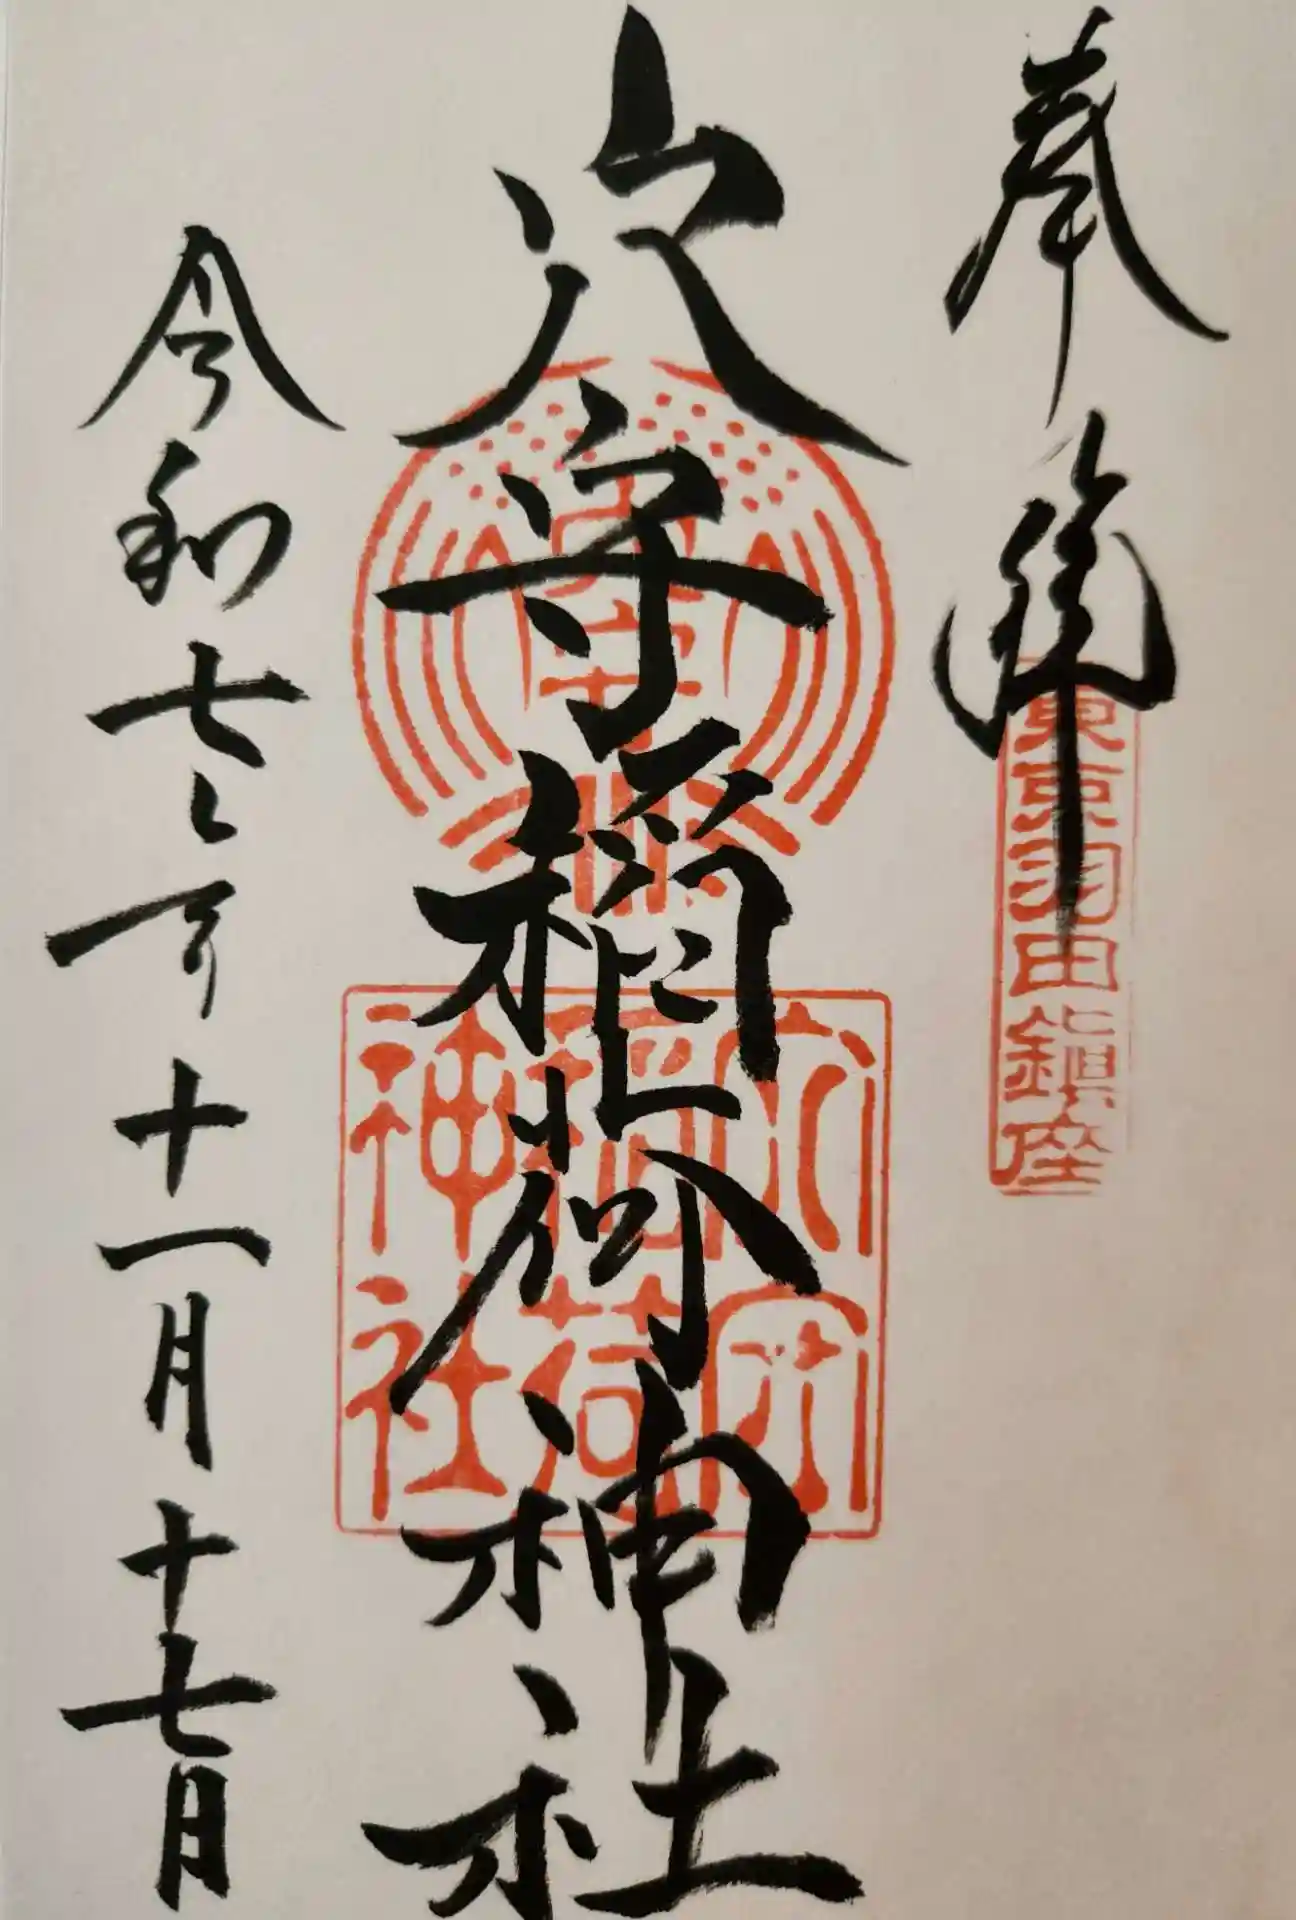 奉拝
東京羽田鎮座
穴守稲荷神社
穴守
穴守
稲荷
神社
令和七年十一月十七日